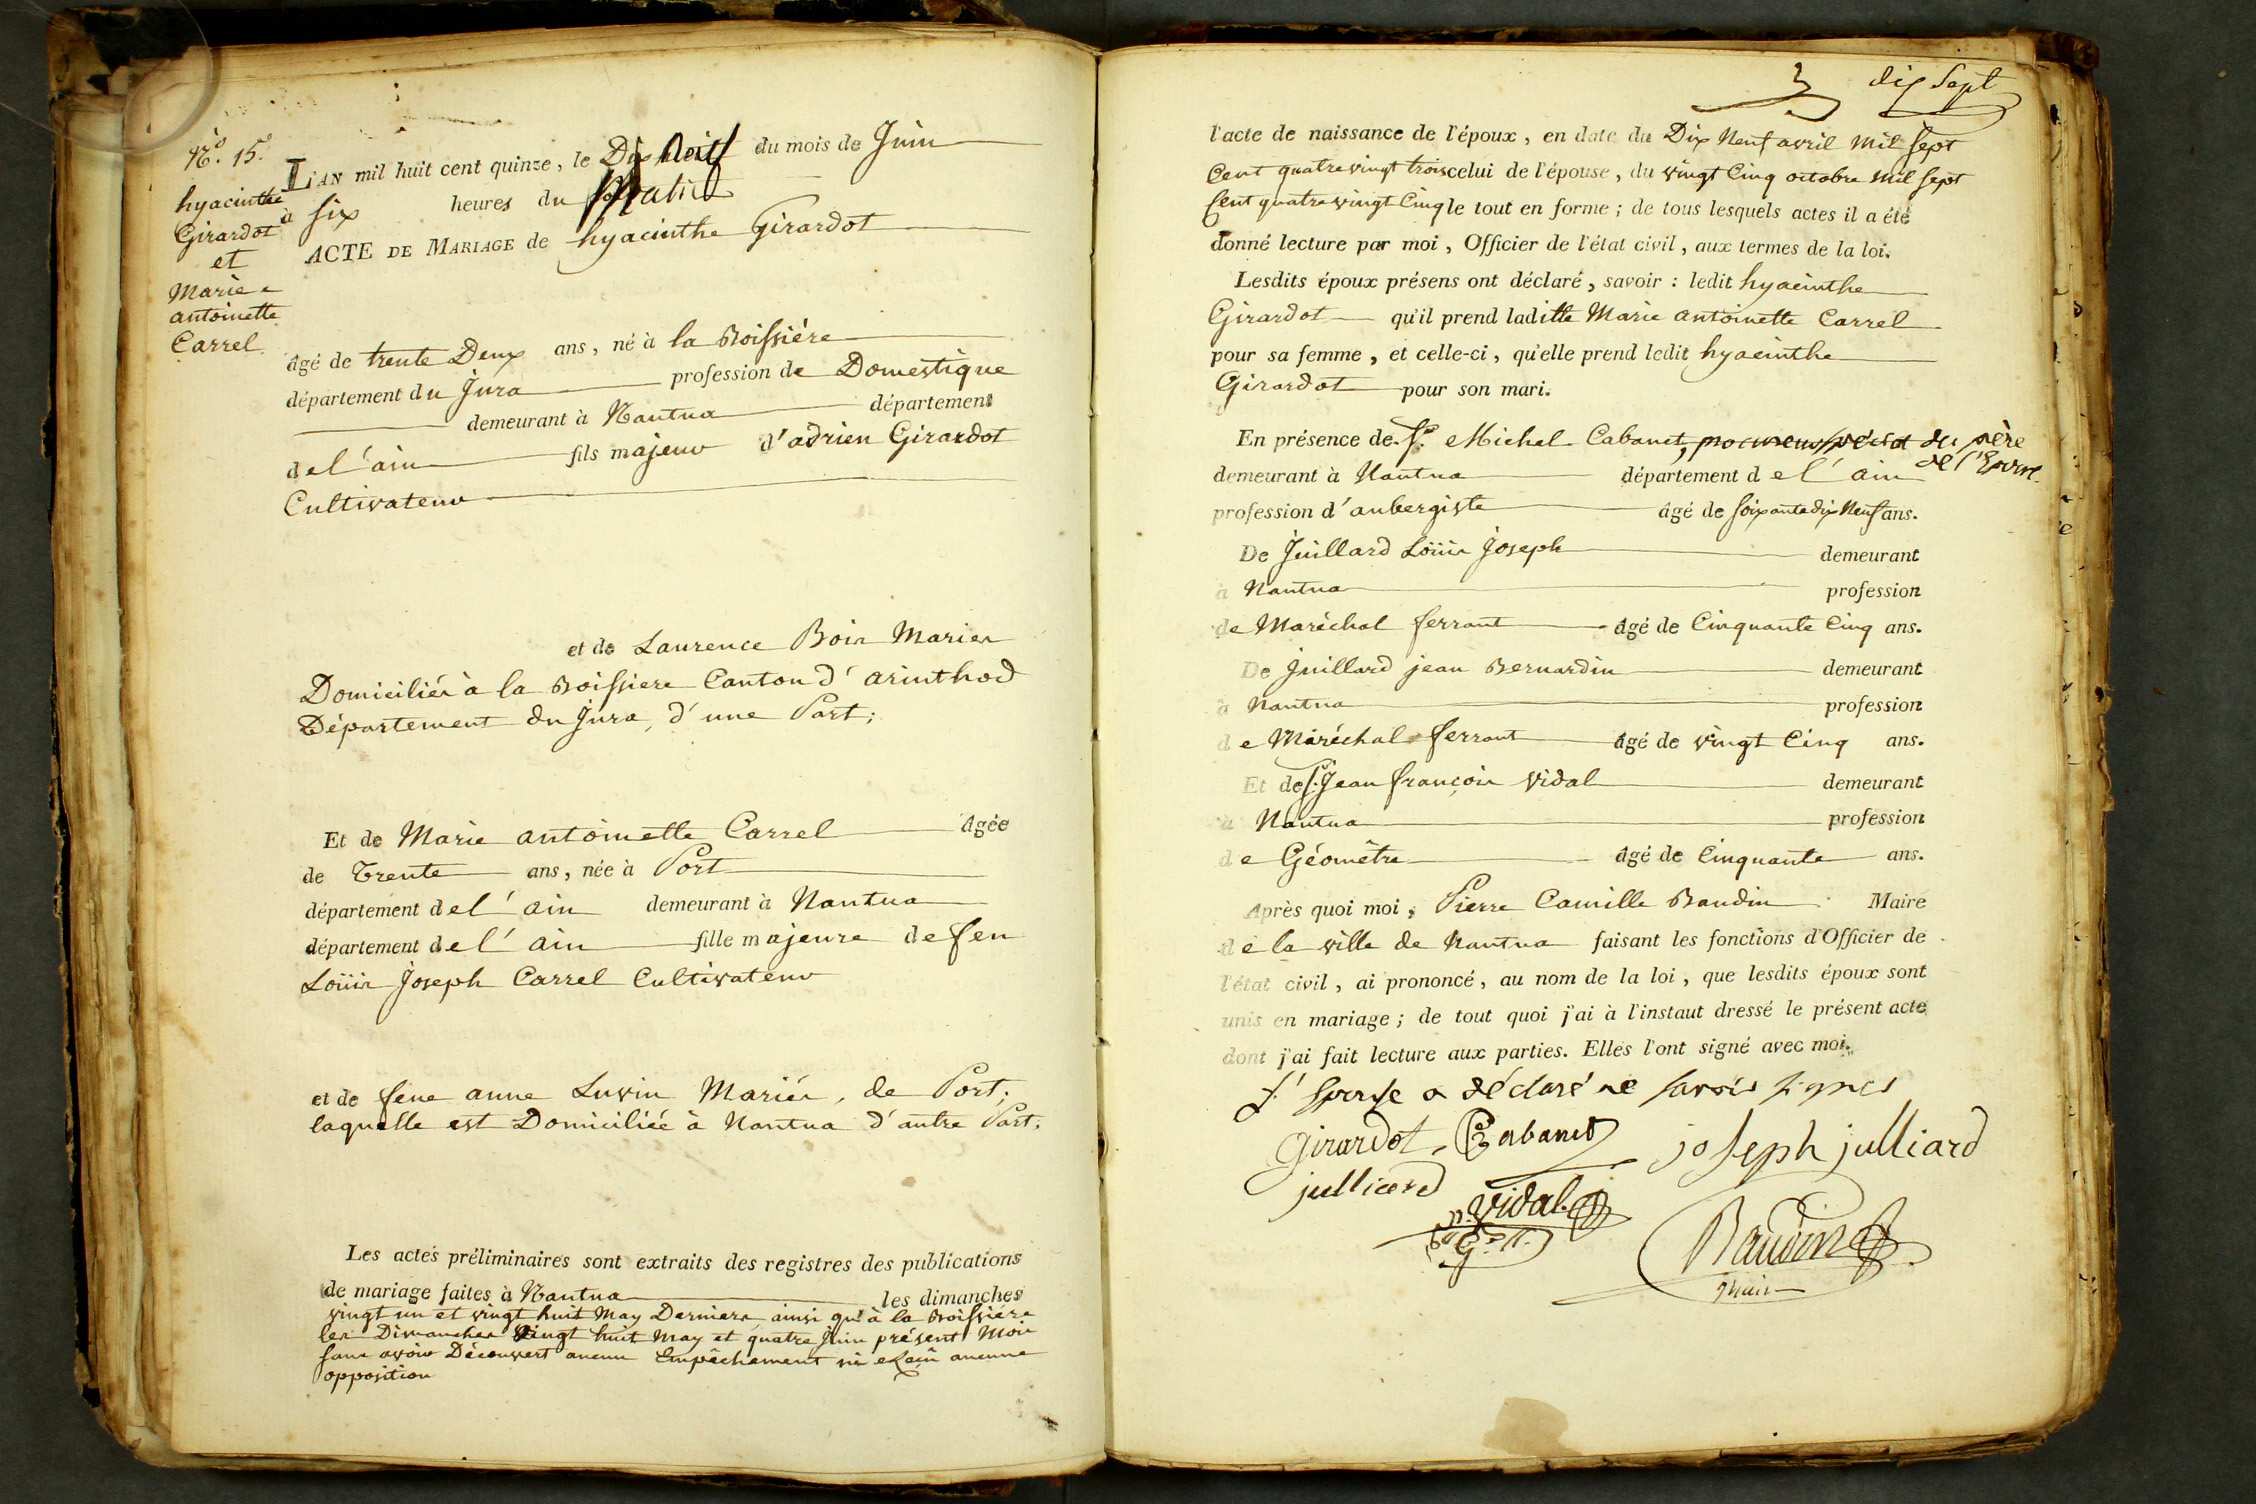 No. 15.
hyacinthe
Girardot
et
Marie
antoinette
Carrel
L'AN mil huit cent quinze, le Dix du mois de Juin
à six heures du Matin
ACTE DE MARIAGE de hyacinthe Girardot
âgé de trente Deux ans, né à la Boissière
département du Jura profession de Domestique
demeurant à Nantua département
de l'ain fils majeur d'adrien Girardot
Cultivateur
et de Laurence Bois Mariés
Domiciliés à la Boissiere Canton d'arinthod
Département du Jura, d'une Part;
Et de Marie antoinette Carrel âgée
de Trente ans, née à Port
département de l'ain demeurant à Nantua
département de l'ain fille majeure de feu
Loüis Joseph Carrel Cultivateur
et de feue anne Luvin Mariés, de Port;
laquelle est Domiciliée à Nantua d'autre Part.
Les actes préliminaires sont extraits des registres des publications
de mariage faites à Nantua les dimanches
vingt un et vingt huit May Derniers, ainsi qu'à la Boissière
les Dimanches vingt huit May et quatre Juin présent Mois
sans avoir Découvert aucun Empêchement ni Reçû aucune
opposition
3 dix sept
l'acte de naissance de l'époux, en date du Dix Neuf avril Mil sept
Cent quatre vingt trois celui de l'épouse, du vingt Cinq octobre Mil sept
Cent quatre vingt Cinq le tout en forme; de tous lesquels actes il a été
donné lecture par moi, Officier de l'état civil, aux termes de la loi.
Lesdits époux présens ont déclaré, savoir: ledit hyacinthe
Girardot qu'il prend laditte Marie antoinette Carrel
pour sa femme, et celle-ci, qu'elle prend ledit hyacinthe
Girardot pour son mari.
En présence de Sr. Michel Cabanet, du père
de l'Epouse
demeurant à Nantua département de l'ain
profession d'aubergiste âgé de soixante dix Neuf ans.
De Juillard Loüis Joseph demeurant
à Nantua profession
de Maréchal ferrant âgé de Cinquante Cinq ans.
De Juillard jean Bernardin demeurant
à Nantua profession
de Maréchal ferrant âgé de vingt Cinq ans.
Et de Sr. Jean françois Vidal demeurant
à Nantua profession
de Géomètre âgé de Cinquante ans.
Après quoi moi, Pierre Camille Baudin Maire
de la ville de Nantua faisant les fonctions d'Officier de
l'état civil, ai prononcé, au nom de la loi, que lesdits époux sont
unis en mariage; de tout quoi j'ai à l'instaut dressé le présent acte
dont j'ai fait lecture aux parties. Elles l'ont signé avec moi.
L'Epouse a déclaré ne savoir signer
girardot Cabanet joseph julliard
julliard
Vidal
Baudin
Maire